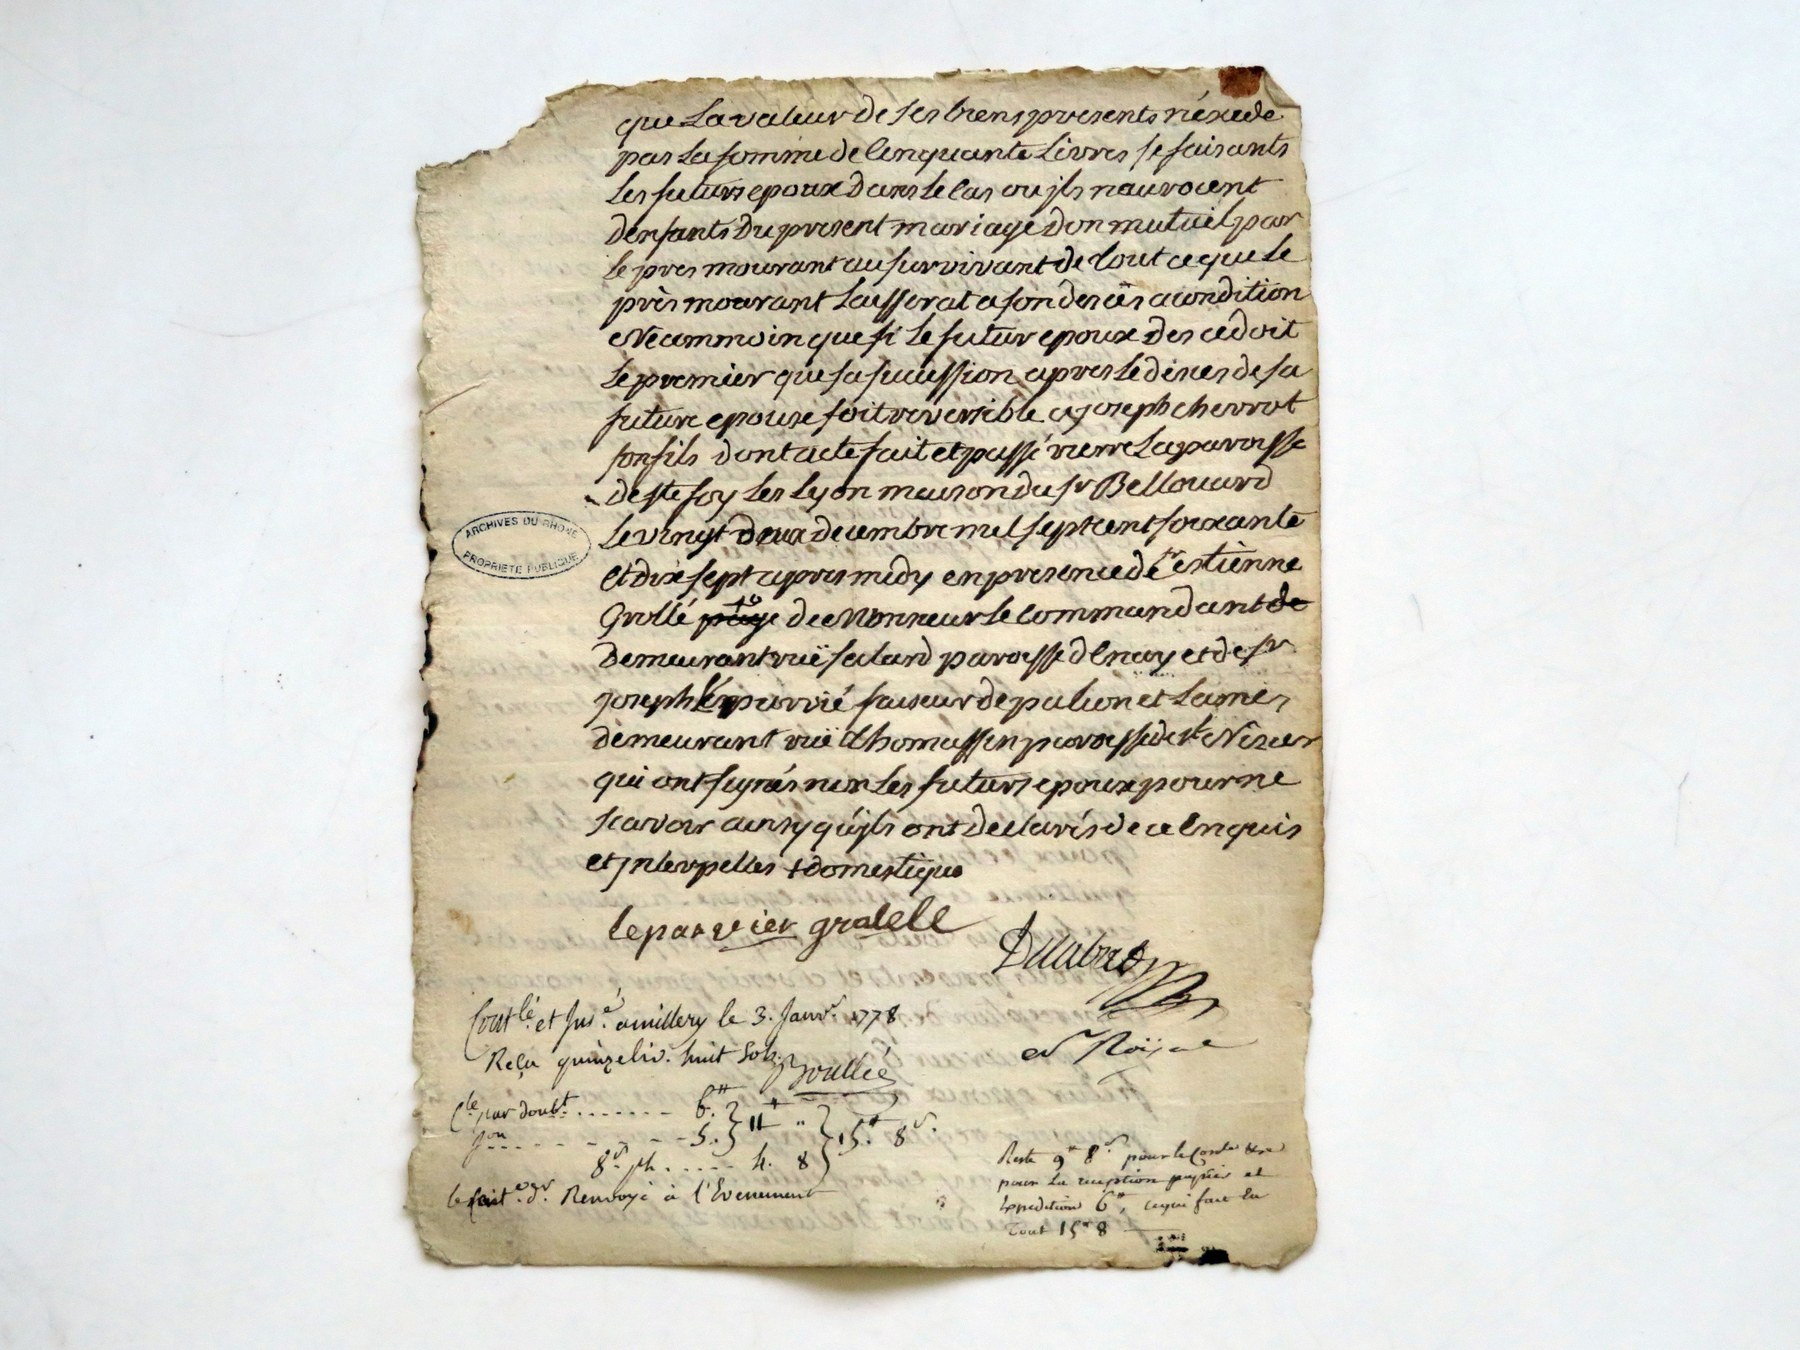 que La valeur de ses biens presents n'éxede
pas La somme de Cinquante Livres se faisants
Les futurs epoux Dans Le Cas ou jls nauroient
denfants Du present mariage Don mutuel par
le pres mourant au survivant de tout ce que Le
près mourant Laisserat a son decès a condition
Neammoin que si Le futur epoux Decedoit
Le premier que sa sucession apres Le déces de sa
future epouse soit reversible a joseph chevrot
son fils dont acte fait et passé rierre La paroisse
de Ste foy Les Lyon maison du sr Bellouard
Le vingt deux decembre mil sept cent soixante
et dix sept apres midy en presence de sr estienne
Grollé page + de Monsieur Le Commandant de
Demeurant ruë salard paroisse dEnay et de sr
joseph Leparvié faiseur de et Lames
demeurant ruë thomassin paroisse de st Nizier
qui ont signés non Les futurs epoux pour ne
scavoir ainsy qu'jls ont declarés de ce Enquis
et jnterpelles + domestique
leparvier grolell
Contlé. et Jnsé. a millery le 3. Janvr. 1778
Reçu quinze liv. huit sols. Boullée
N Roÿer
Cle par doubt ....... 6.# } 11# " } 15.# 8s.
Jon ....... 5.
8s. ph ..... 4. 8
Renvoyé à l'Evenement
Reste 9# 8s pour le Conle &
pour La reception papier et
Expedition 6#, ce qui fait En
Tout 15# 8
ARCHIVES DU RHONE
PROPRIETE PUBLIQUE